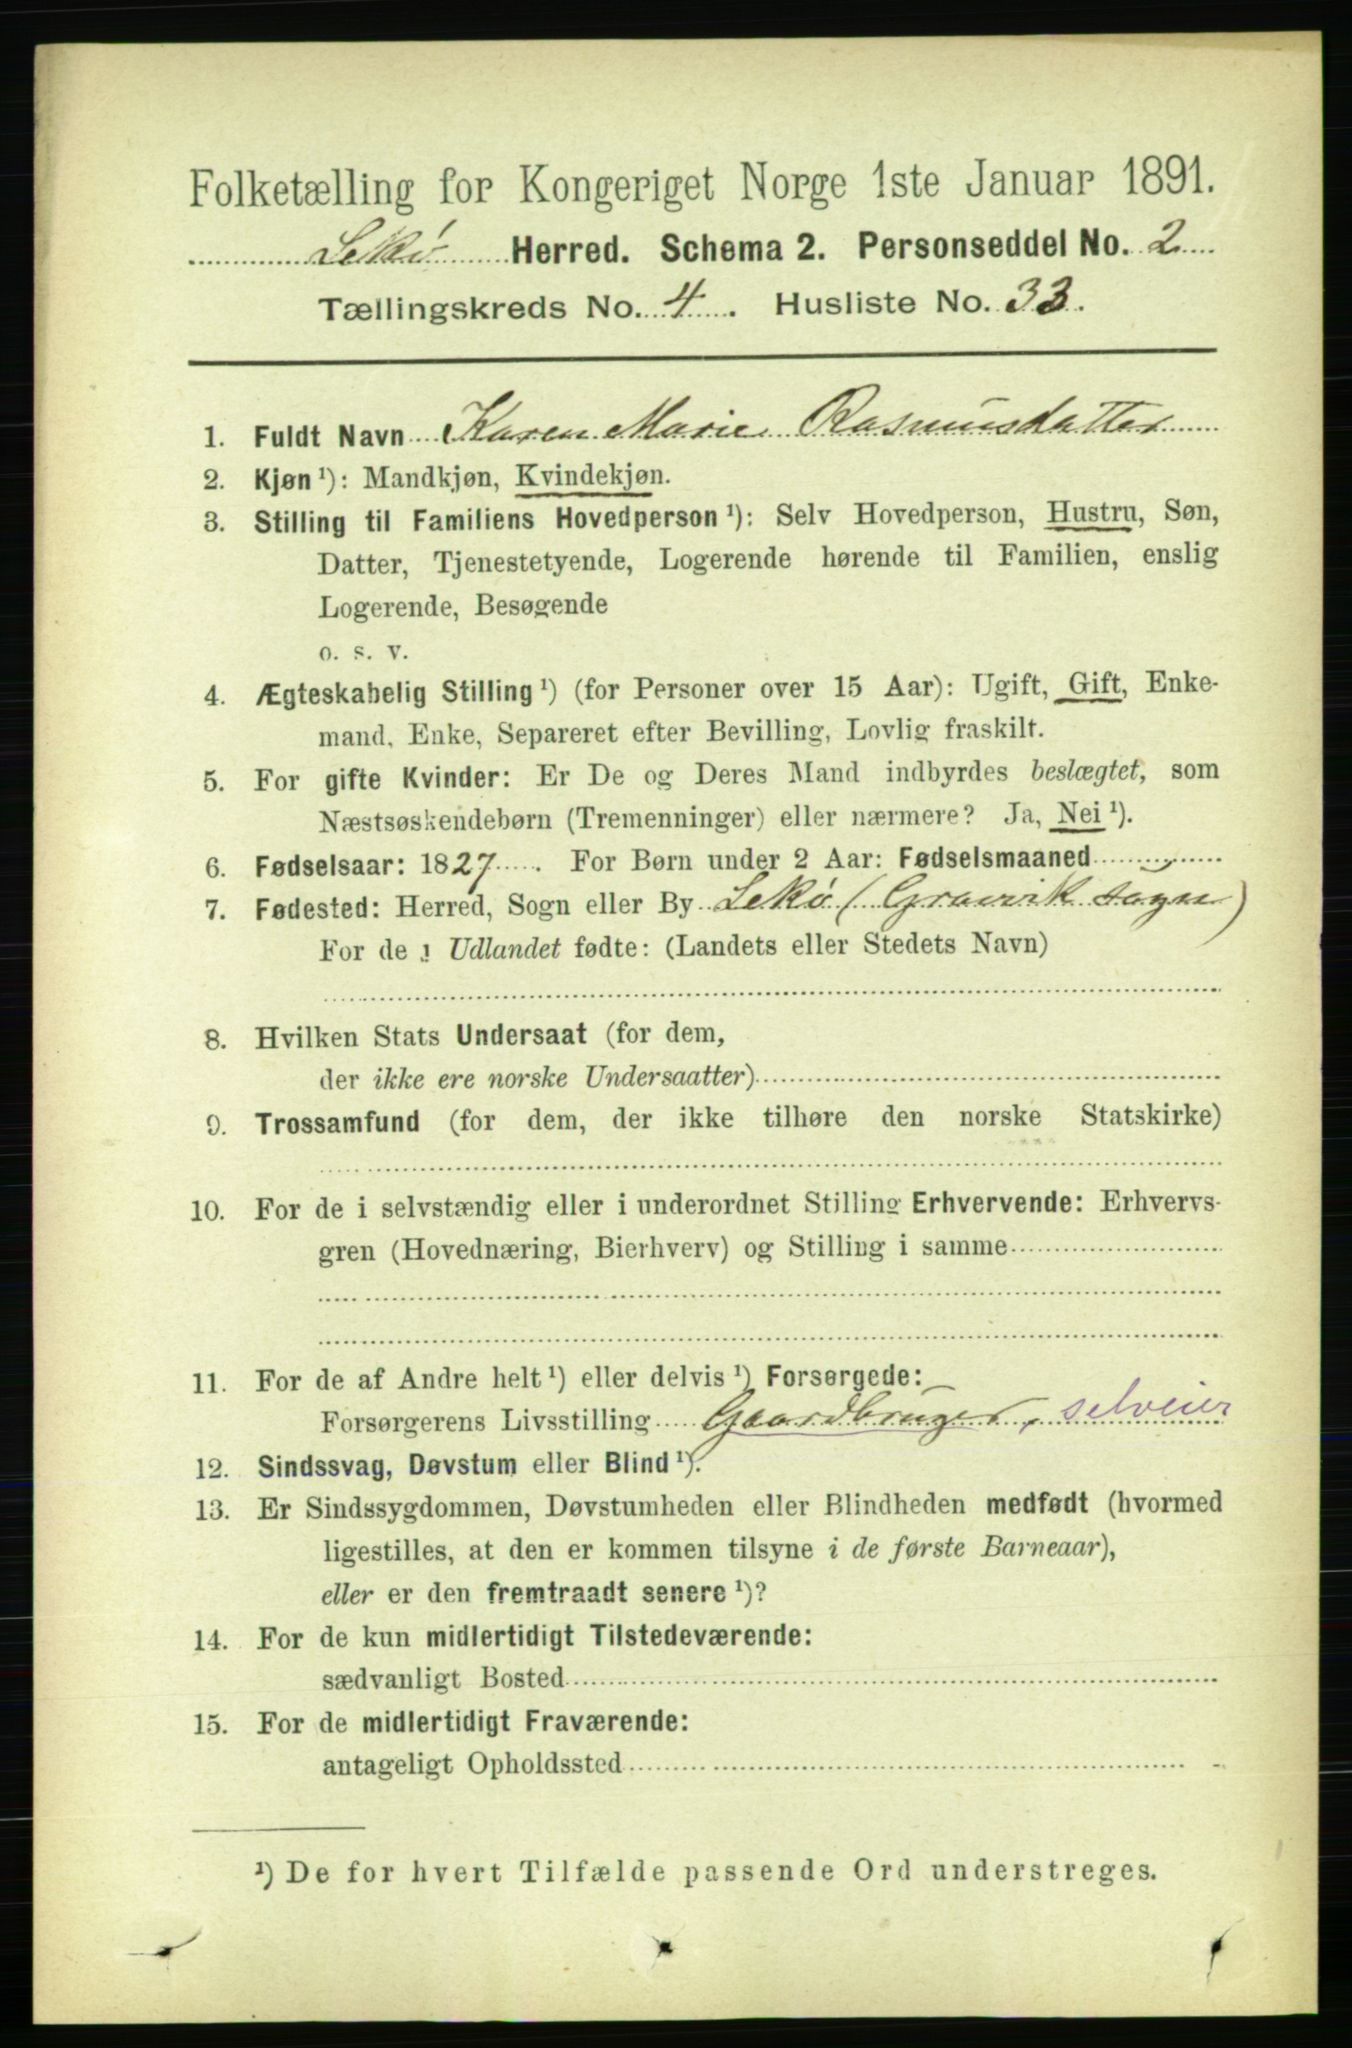 Folketælling for Kongeriget Norge 1ste Januar 1891.
Lekø Herred. Schema 2. Personseddel No. 2
Tællingskreds No. 4. Husliste No. 33.
1. Fuldt Navn Karen Marie Rasmusdatter
2. Kjøn ¹): Mandkjøn, Kvindekjøn.
3. Stilling til Familiens Hovedperson ¹): Selv Hovedperson, Hustru, Søn,
Datter, Tjenestetyende, Logerende hørende til Familien, enslig
Logerende, Besøgende
o. s. v.
4. Ægteskabelig Stilling ¹) (for Personer over 15 Aar): Ugift, Gift, Enke-
mand, Enke, Separeret efter Bevilling, Lovlig fraskilt.
5. For gifte Kvinder: Er De og Deres Mand indbyrdes beslægtet, som
Næstsøskendebørn (Tremenninger) eller nærmere? Ja, Nei ¹).
6. Fødselsaar: 1827. For Børn under 2 Aar: Fødselsmaaned
7. Fødested: Herred, Sogn eller By Lekø (Gravvik sogn)
For de i Udlandet fødte: (Landets eller Stedets Navn)
8. Hvilken Stats Undersaat (for dem,
der ikke ere norske Undersaatter)
9. Trossamfund (for dem, der ikke tilhøre den norske Statskirke)
10. For de i selvstændig eller i underordnet Stilling Erhvervende: Erhvervs-
gren (Hovednæring, Bierhverv) og Stilling i samme
11. For de af Andre helt ¹) eller delvis ¹) Forsørgede:
Forsørgerens Livsstilling Gaardbruger, selveier
12. Sindssvag, Døvstum eller Blind ¹).
13. Er Sindssygdommen, Døvstumheden eller Blindheden medfødt (hvormed
ligestilles, at den er kommen tilsyne i de første Barneaar),
eller er den fremtraadt senere ¹)?
14. For de kun midlertidigt Tilstedeværende:
sædvanligt Bosted
15. For de midlertidigt Fraværende:
antageligt Opholdssted
¹) De for hvert Tilfælde passende Ord understreges.